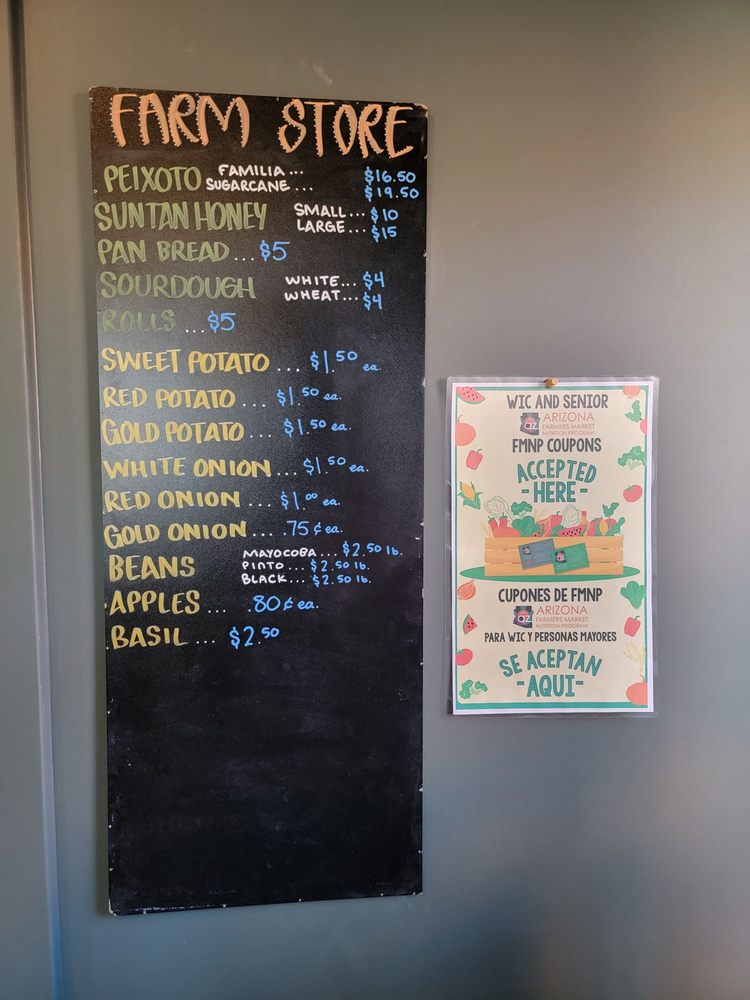 FARM STORE
PEIXOTO FAMILIA ... $16.50
SUGARCANE ... $19.50
SUNTAN HONEY SMALL... $10
LARGE... $15
PAN BREAD ... $5
SOURDOUGH WHITE... $4
WHEAT... $4
ROLLS ... $5
SWEET POTATO ... $1.50 ea.
RED POTATO ... $1.50 ea.
GOLD POTATO ... $1.50 ea.
WHITE ONION ... $1.50 ea.
RED ONION ... $1.00 ea.
GOLD ONION ... .75¢ ea.
BEANS MAYOCOBA ... $2.50 lb.
PINTO ... $2.50 lb.
BLACK ... $2.50 lb.
APPLES ... .80¢ ea.
BASIL ... $2.50
WIC AND SENIOR
az ARIZONA
FARMERS MARKET
NUTRITION PROGRAM
FMNP COUPONS
ACCEPTED
-HERE-
CUPONES DE FMNP
az ARIZONA
FARMERS MARKET
NUTRITION PROGRAM
PARA WIC Y PERSONAS MAYORES
SE ACEPTAN
-AQUI-